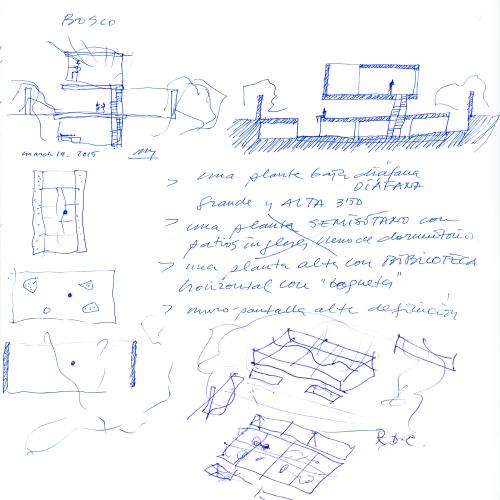 BOSCO
march 19. 2015
> una planta baja diáfana
DIÁFANA
grande y ALTA 3'50
> una planta SEMISÓTANO con
patios ingleses lleno de dormitorios
> una planta alta con BIBLIOTECA
horizontal con
> muro-pantalla alta definición